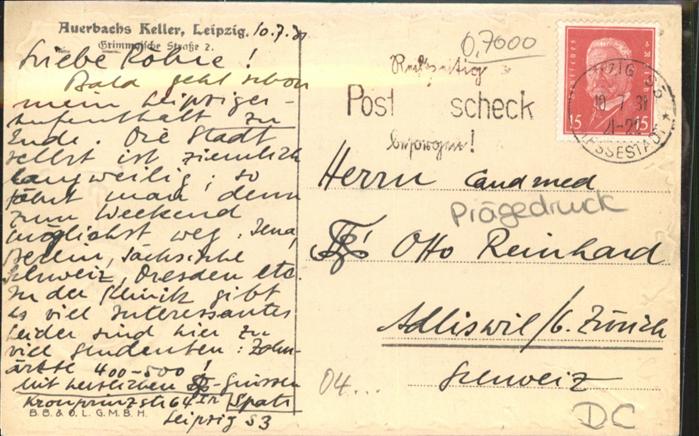 Auerbachs Keller, Leipzig. 10.7.31
Grimmaische Straße 2.
Liebe Rohre!
Bald geht schon
mein Leipziger-
aufenthalt zu
Ende. Die Stadt
selbst ist ziemlich
langweilig; so
fährt man denn
zum Weekend
möglichst weg. Jena,
Sächsische
Schweiz, Dresden etc.
In der Klinik gibt
es viel Interessantes
leider sind hier zu
viel Studenten: Zahn-
ärzte 400-500!
Mit herzlichen Grüssen
Kronprinzstr 64 Spatz
Leipzig S3
B.B.& O.L. G.M.B.H.
0,7000
Rechtzeitig
Postscheck
besorgen!
15 15
10.7.31
MESSESTADT
Herrn Cand med
Prägedruck
Otto Reinhard
Adliswil/b. Zürich
Schweiz
04...
DC